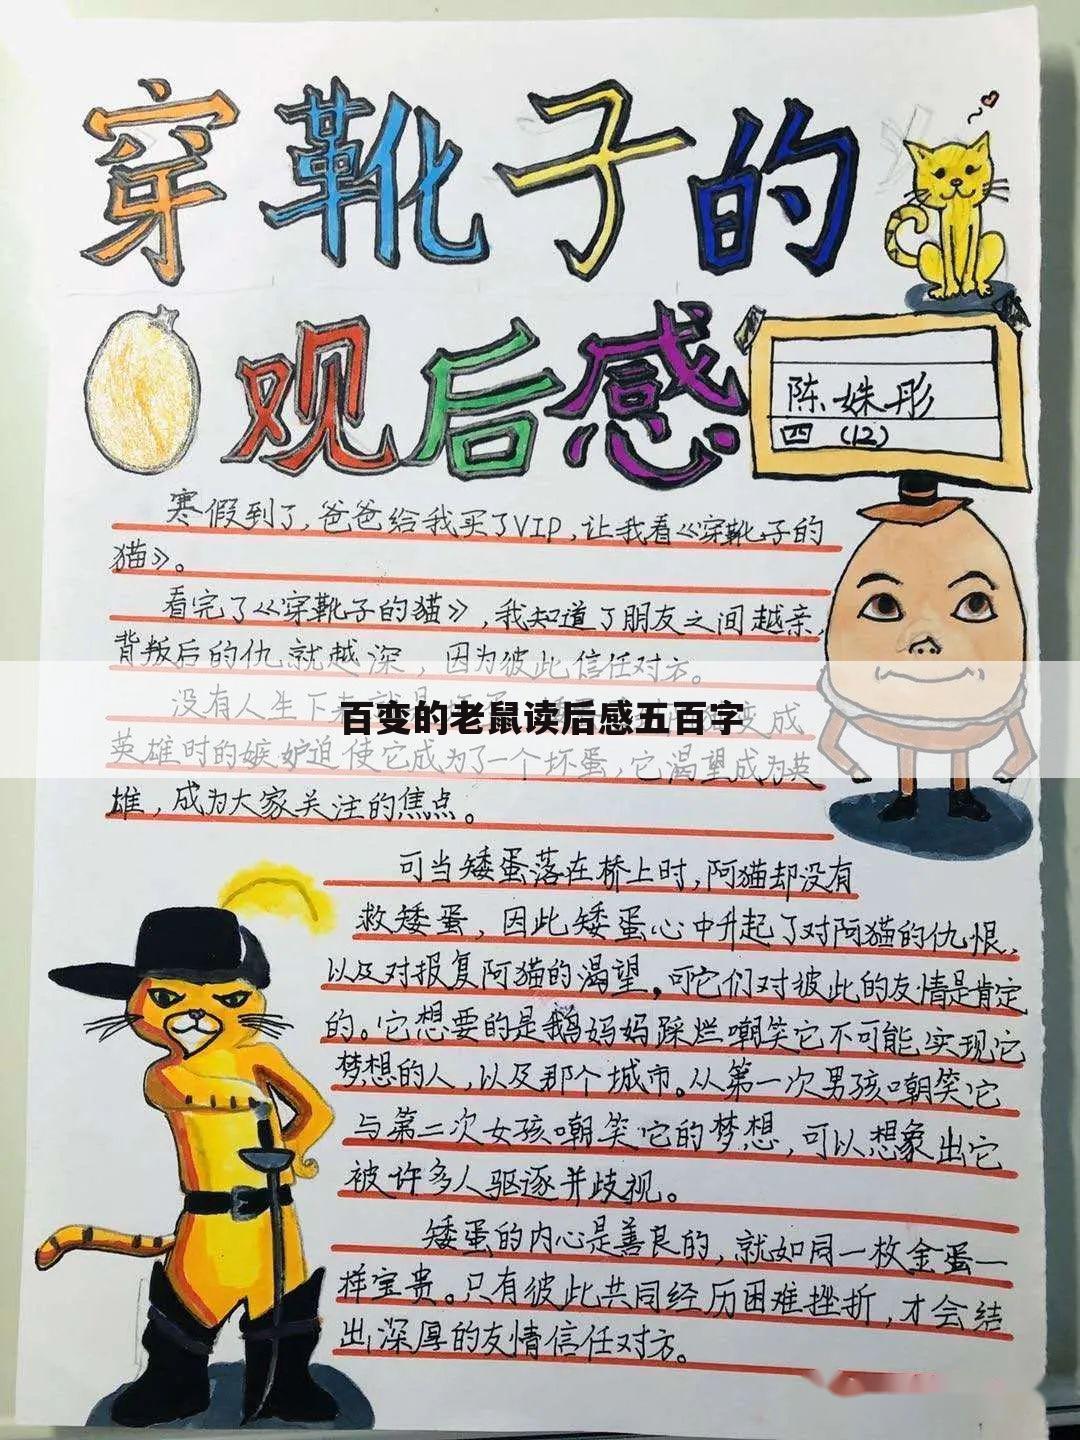 穿靴子的
观后感
陈姝彤
四(12)
寒假到了,爸爸给我买了VIP,让我看《穿靴子的
猫》。
看完了《穿靴子的猫》,我知道了朋友之间越亲,
背叛后的仇就越深,因为彼此信任对方。
没有人生下来就是
变成
百变的老鼠读后感五百字
英雄时的嫉妒迫使它成为了一个坏蛋,它渴望成为英
雄,成为大家关注的焦点。
可当矮蛋落在桥上时,阿猫却没有
救矮蛋,因此矮蛋心中升起了对阿猫的仇恨,
以及对报复阿猫的渴望,可它们对彼此的友情是肯定
的。它想要的是鹅妈妈踩烂嘲笑它不可能实现它
梦想的人,以及那个城市。从第一次男孩嘲笑它
与第二次女孩嘲笑它的梦想,可以想象出它
被许多人驱逐并歧视。
矮蛋的内心是善良的,就如同一枚金蛋一
样宝贵。只有彼此共同经历困难挫折,才会结
出深厚的友情信任对方。